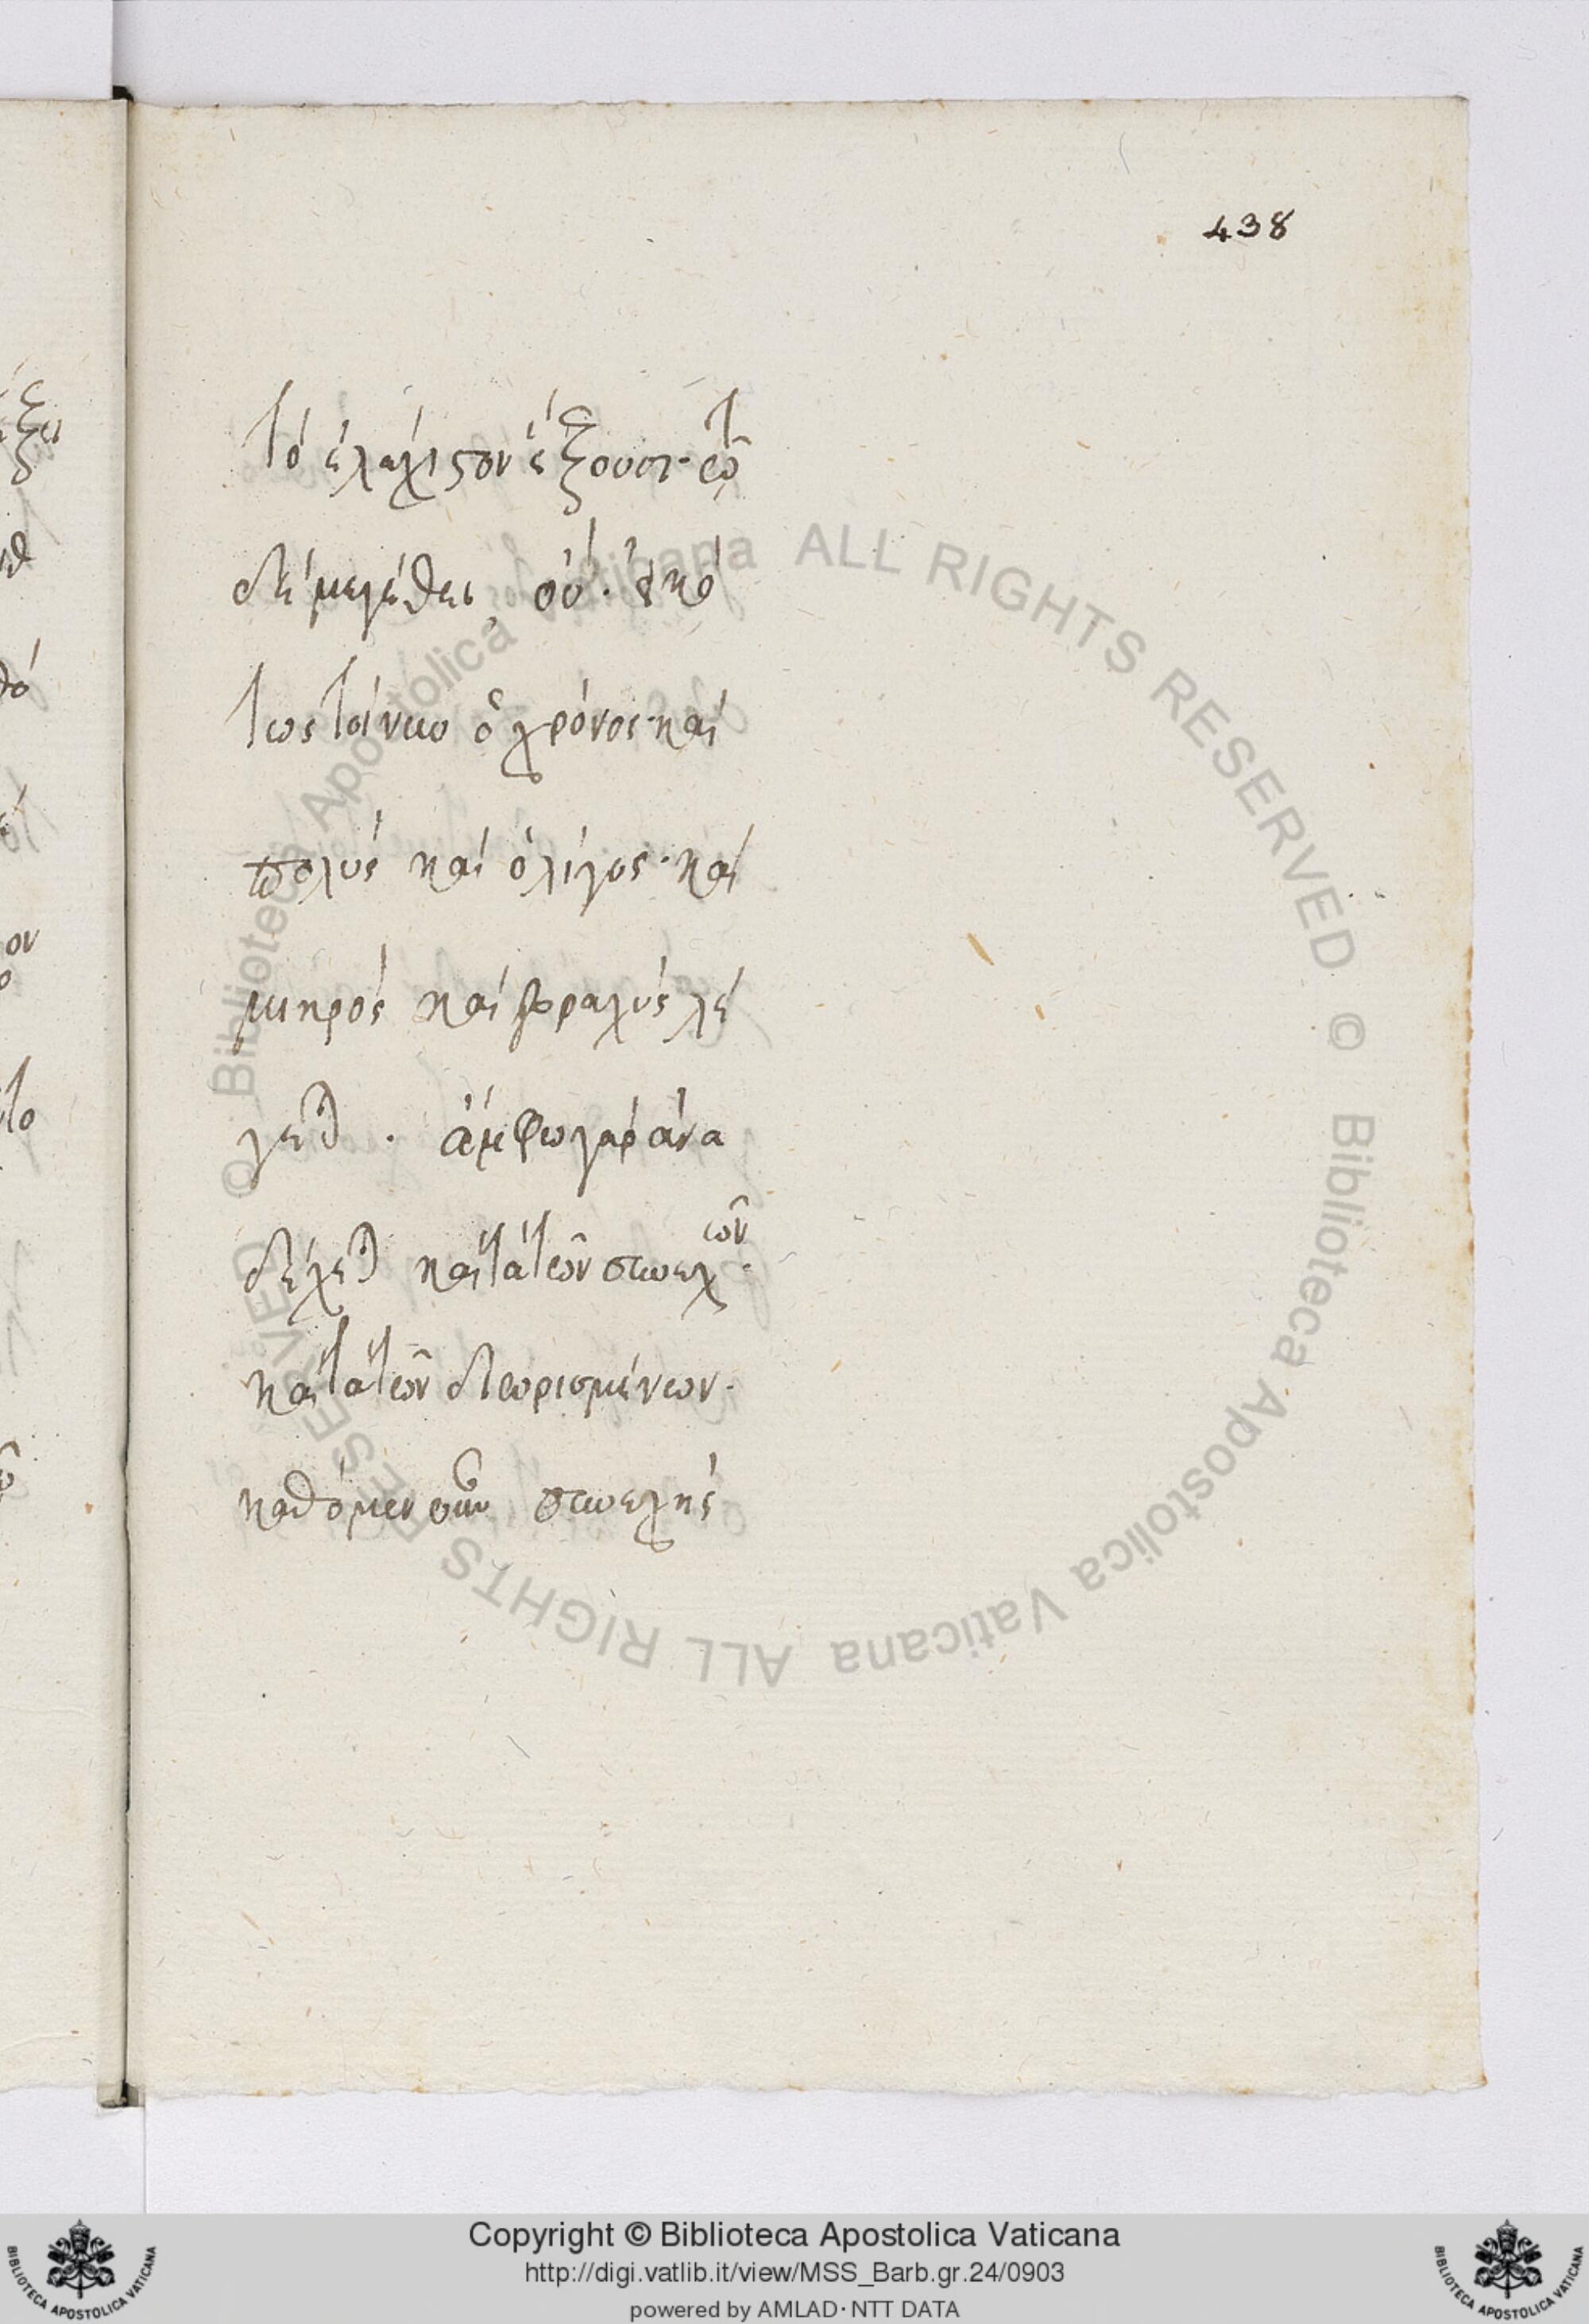 438
τὸ ἐλάχιστον ἕξουσι· τῷ
δὲ μεγέθει, οὔ. εἰκό
τως τοίνυν ὁ χρόνος· καὶ
πολὺς καὶ ὀλίγος· καὶ
μικρὸς καὶ βραχὺς λέ
γεται . ἄμφω γὰρ ἀνα
δέχεται καὶ τὰ τῶν συνεχῶν·
καὶ τὰ τῶν διωρισμένων·
καθό μεν οὖν συνεχὴς
© Biblioteca Apostolica Vaticana ALL RIGHTS RESERVED © Biblioteca Apostolica Vaticana ALL RIGHTS RESERVED
Copyright © Biblioteca Apostolica Vaticana
http://digi.vatlib.it/view/MSS_Barb.gr.24/0903
powered by AMLAD · NTT DATA
BIBLIOTECA APOSTOLICA VATICANA
BIBLIOTECA APOSTOLICA VATICANA